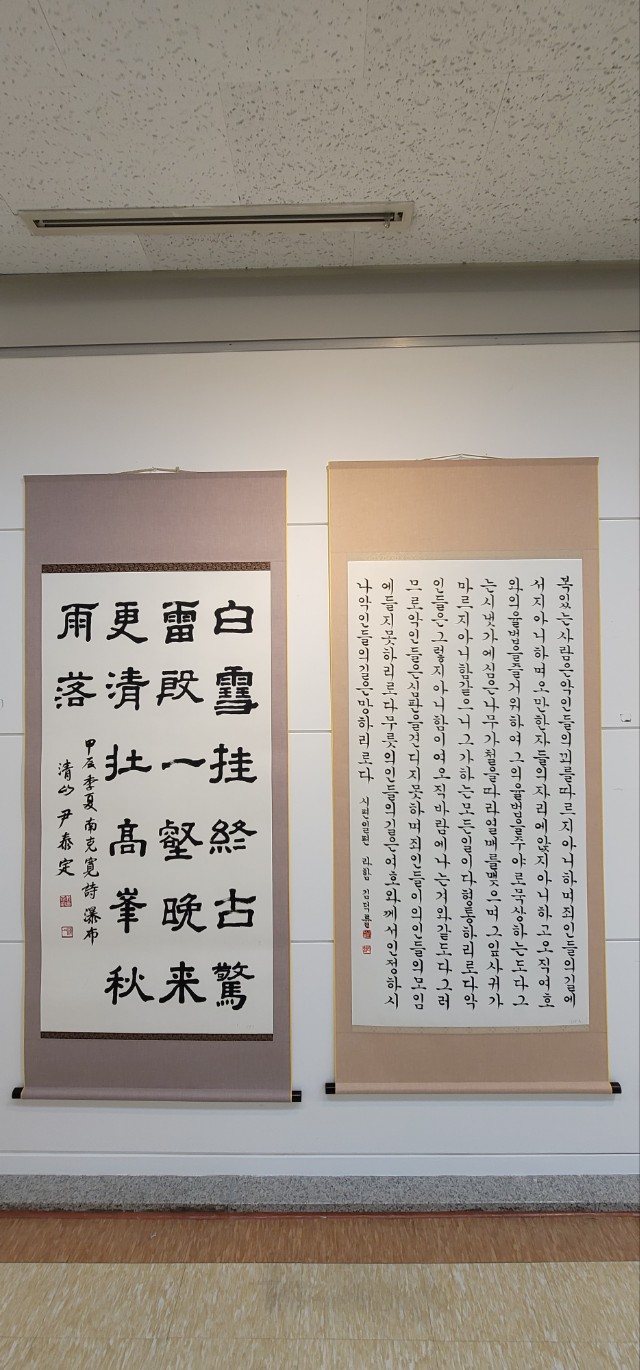 白雪挂終古驚
雷殷一壑晚来
更清壯高峯秋
雨落
甲辰季夏南克寬詩瀑布
清山 尹泰定
복있는사람은악인들의꾀를따르지아니하며죄인들의길에
서지아니하며오만한자들의자리에앉지아니하고오직여호
와의율법을즐거워하여그의율법을주야로묵상하는도다그
는시냇가에심은나무가철을따라열매를맺으며그잎사귀가
마르지아니함같으니그가하는모든일이다형통하리로다악
인들은그렇지아니함이여오직바람에나는겨와같도다그러
므로악인들은심판을견디지못하며죄인들이의인들의모임
에들지못하리로다무릇의인들의길은여호와께서인정하시
나악인들의길은망하리로다 시편일편 라함